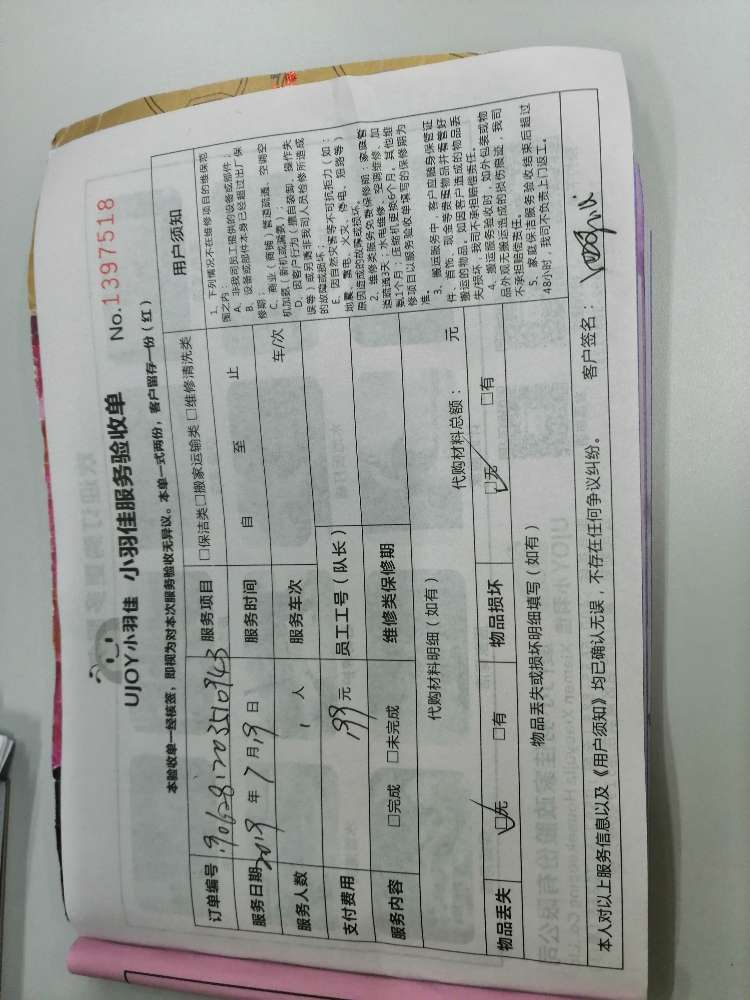 UJOY小羽佳 小羽佳服务验收单 No.1397518
本验收单一经核签，即视为对本次服务验收无异议。本单一式两份，客户留存一份（红）
订单编号 1906281203510943 服务项目 □保洁类□搬家运输类 □维修清洗类
服务日期 2019 年 7 月 19 日 服务时间 自 至 止
服务人数 1 人 服务车次 车/次
支付费用 199 元 员工工号（队长）
服务内容 □完成 □未完成 维修类保修期
代购材料明细（如有） 代购材料总额： 元
物品丢失 □无 □有 物品损坏 □无 □有
物品丢失或损坏明细填写（如有）
用户须知
1、下列情况不在维修项目的维保范
围之内：
A、非我司员工提供的设备或部件；
B、设备或部件本身已经超过出厂保
修期；
C、商业（商铺）管道疏通、空调空
机加氨（新机或漏氨）；
D、因客户行为（擅自装卸、操作失
误等）或另请非我司人员检修所造成
的故障或损坏；
E、因自然灾害等不可抗拒力（如：
地震、雷电、火灾、停电、短路等）
原因造成的故障或损坏。
2、维修类服务免费保修期：家庭管
道疏通3天；水电维修、空调维修、加
氨1个月；压缩机更换6个月，其他维
修项目以服务验收单填写的保修期为
准。
3、搬运服务中，客户应随身保管证
件、首饰、现金等贵重物品并看管好
搬运的物品，如因客户造成的物品丢
失/损坏，我司不承担赔偿责任。
4、搬运服务验收时，如外包装或物
品外观无搬运造成的损伤痕迹，我司
不承担赔偿责任。
5、家庭保洁服务验收结束后超过
48小时，我司不负责上门返工。
本人对以上服务信息以及《用户须知》均已确认无误，不存在任何争议纠纷。 客户签名：